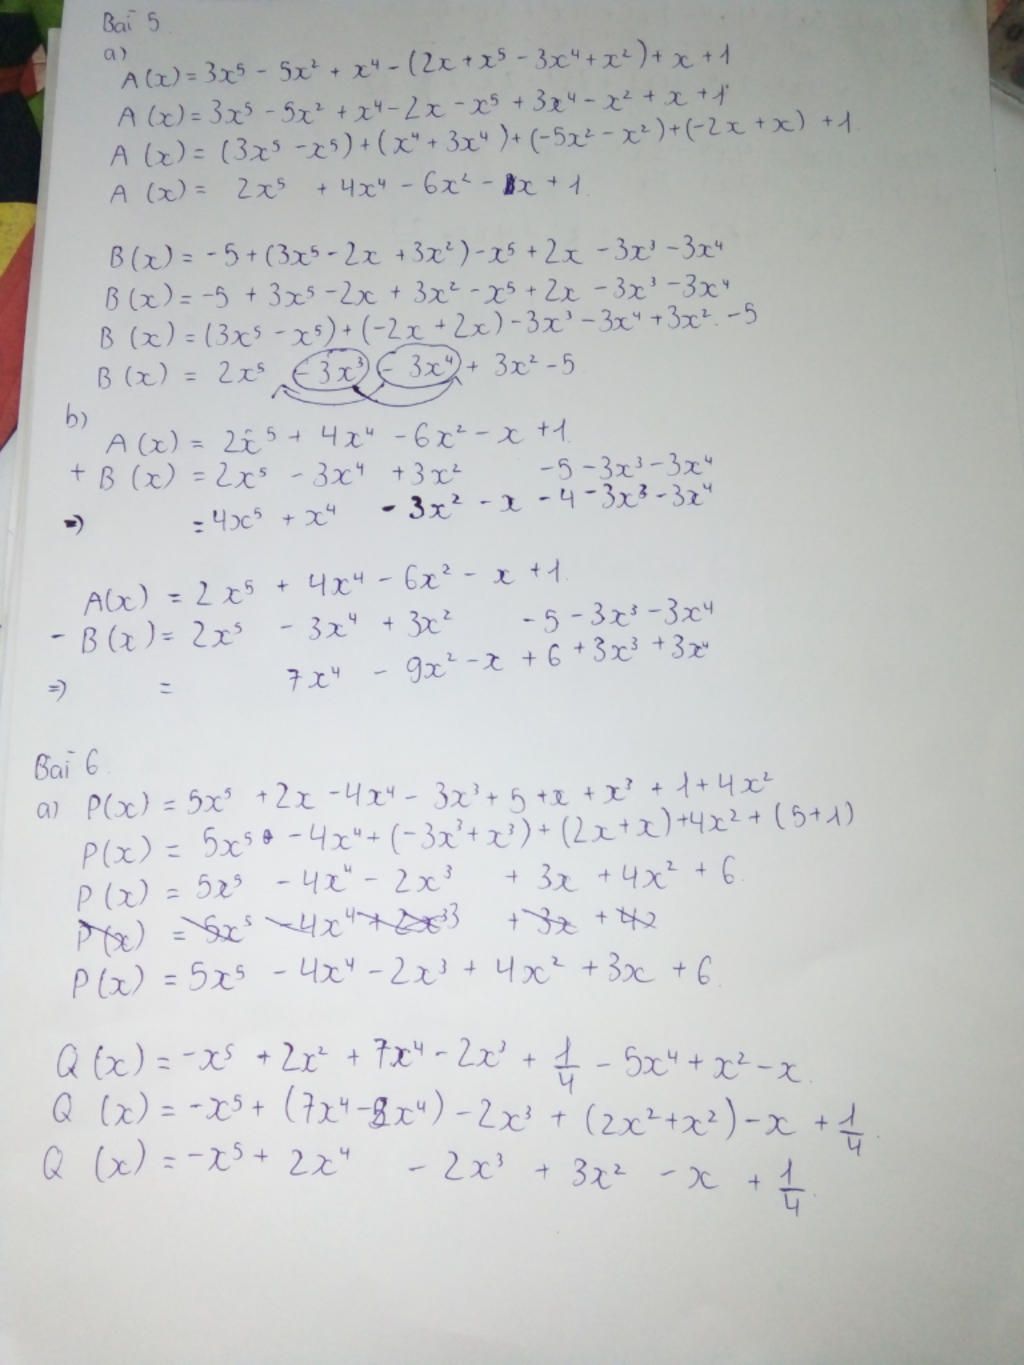 Bài 5
a)
A(x) = 3x⁵ - 5x² + x⁴ - (2x + x⁵ - 3x⁴ + x²) + x + 1
A(x) = 3x⁵ - 5x² + x⁴ - 2x - x⁵ + 3x⁴ - x² + x + 1
A(x) = (3x⁵ - x⁵) + (x⁴ + 3x⁴) + (-5x² - x²) + (-2x + x) + 1
A(x) = 2x⁵ + 4x⁴ - 6x² - 1x + 1
B(x) = -5 + (3x⁵ - 2x + 3x²) - x⁵ + 2x - 3x³ - 3x⁴
B(x) = -5 + 3x⁵ - 2x + 3x² - x⁵ + 2x - 3x³ - 3x⁴
B(x) = (3x⁵ - x⁵) + (-2x + 2x) - 3x³ - 3x⁴ + 3x² - 5
B(x) = 2x⁵ - 3x³ - 3x⁴ + 3x² - 5
b)
A(x) = 2x⁵ + 4x⁴ - 6x² - x + 1
+ B(x) = 2x⁵ - 3x⁴ + 3x² - 5 - 3x³ - 3x⁴
=> = 4x⁵ + x⁴ - 3x² - x - 4 - 3x³ - 3x⁴
A(x) = 2x⁵ + 4x⁴ - 6x² - x + 1
- B(x) = 2x⁵ - 3x⁴ + 3x² - 5 - 3x³ - 3x⁴
=> = 7x⁴ - 9x² - x + 6 + 3x³ + 3x⁴
Bài 6
a) P(x) = 5x⁵ + 2x - 4x⁴ - 3x³ + 5 + x + x³ + 1 + 4x²
P(x) = 5x⁵ - 4x⁴ + (-3x³ + x³) + (2x + x) + 4x² + (5 + 1)
P(x) = 5x⁵ - 4x⁴ - 2x³ + 3x + 4x² + 6
P(x) = 5x⁵ - 4x⁴ + 2x³ + 3x + 4x
P(x) = 5x⁵ - 4x⁴ - 2x³ + 4x² + 3x + 6
Q(x) = -x⁵ + 2x² + 7x⁴ - 2x³ + 1/4 - 5x⁴ + x² - x
Q(x) = -x⁵ + (7x⁴ - 5x⁴) - 2x³ + (2x² + x²) - x + 1/4
Q(x) = -x⁵ + 2x⁴ - 2x³ + 3x² - x + 1/4